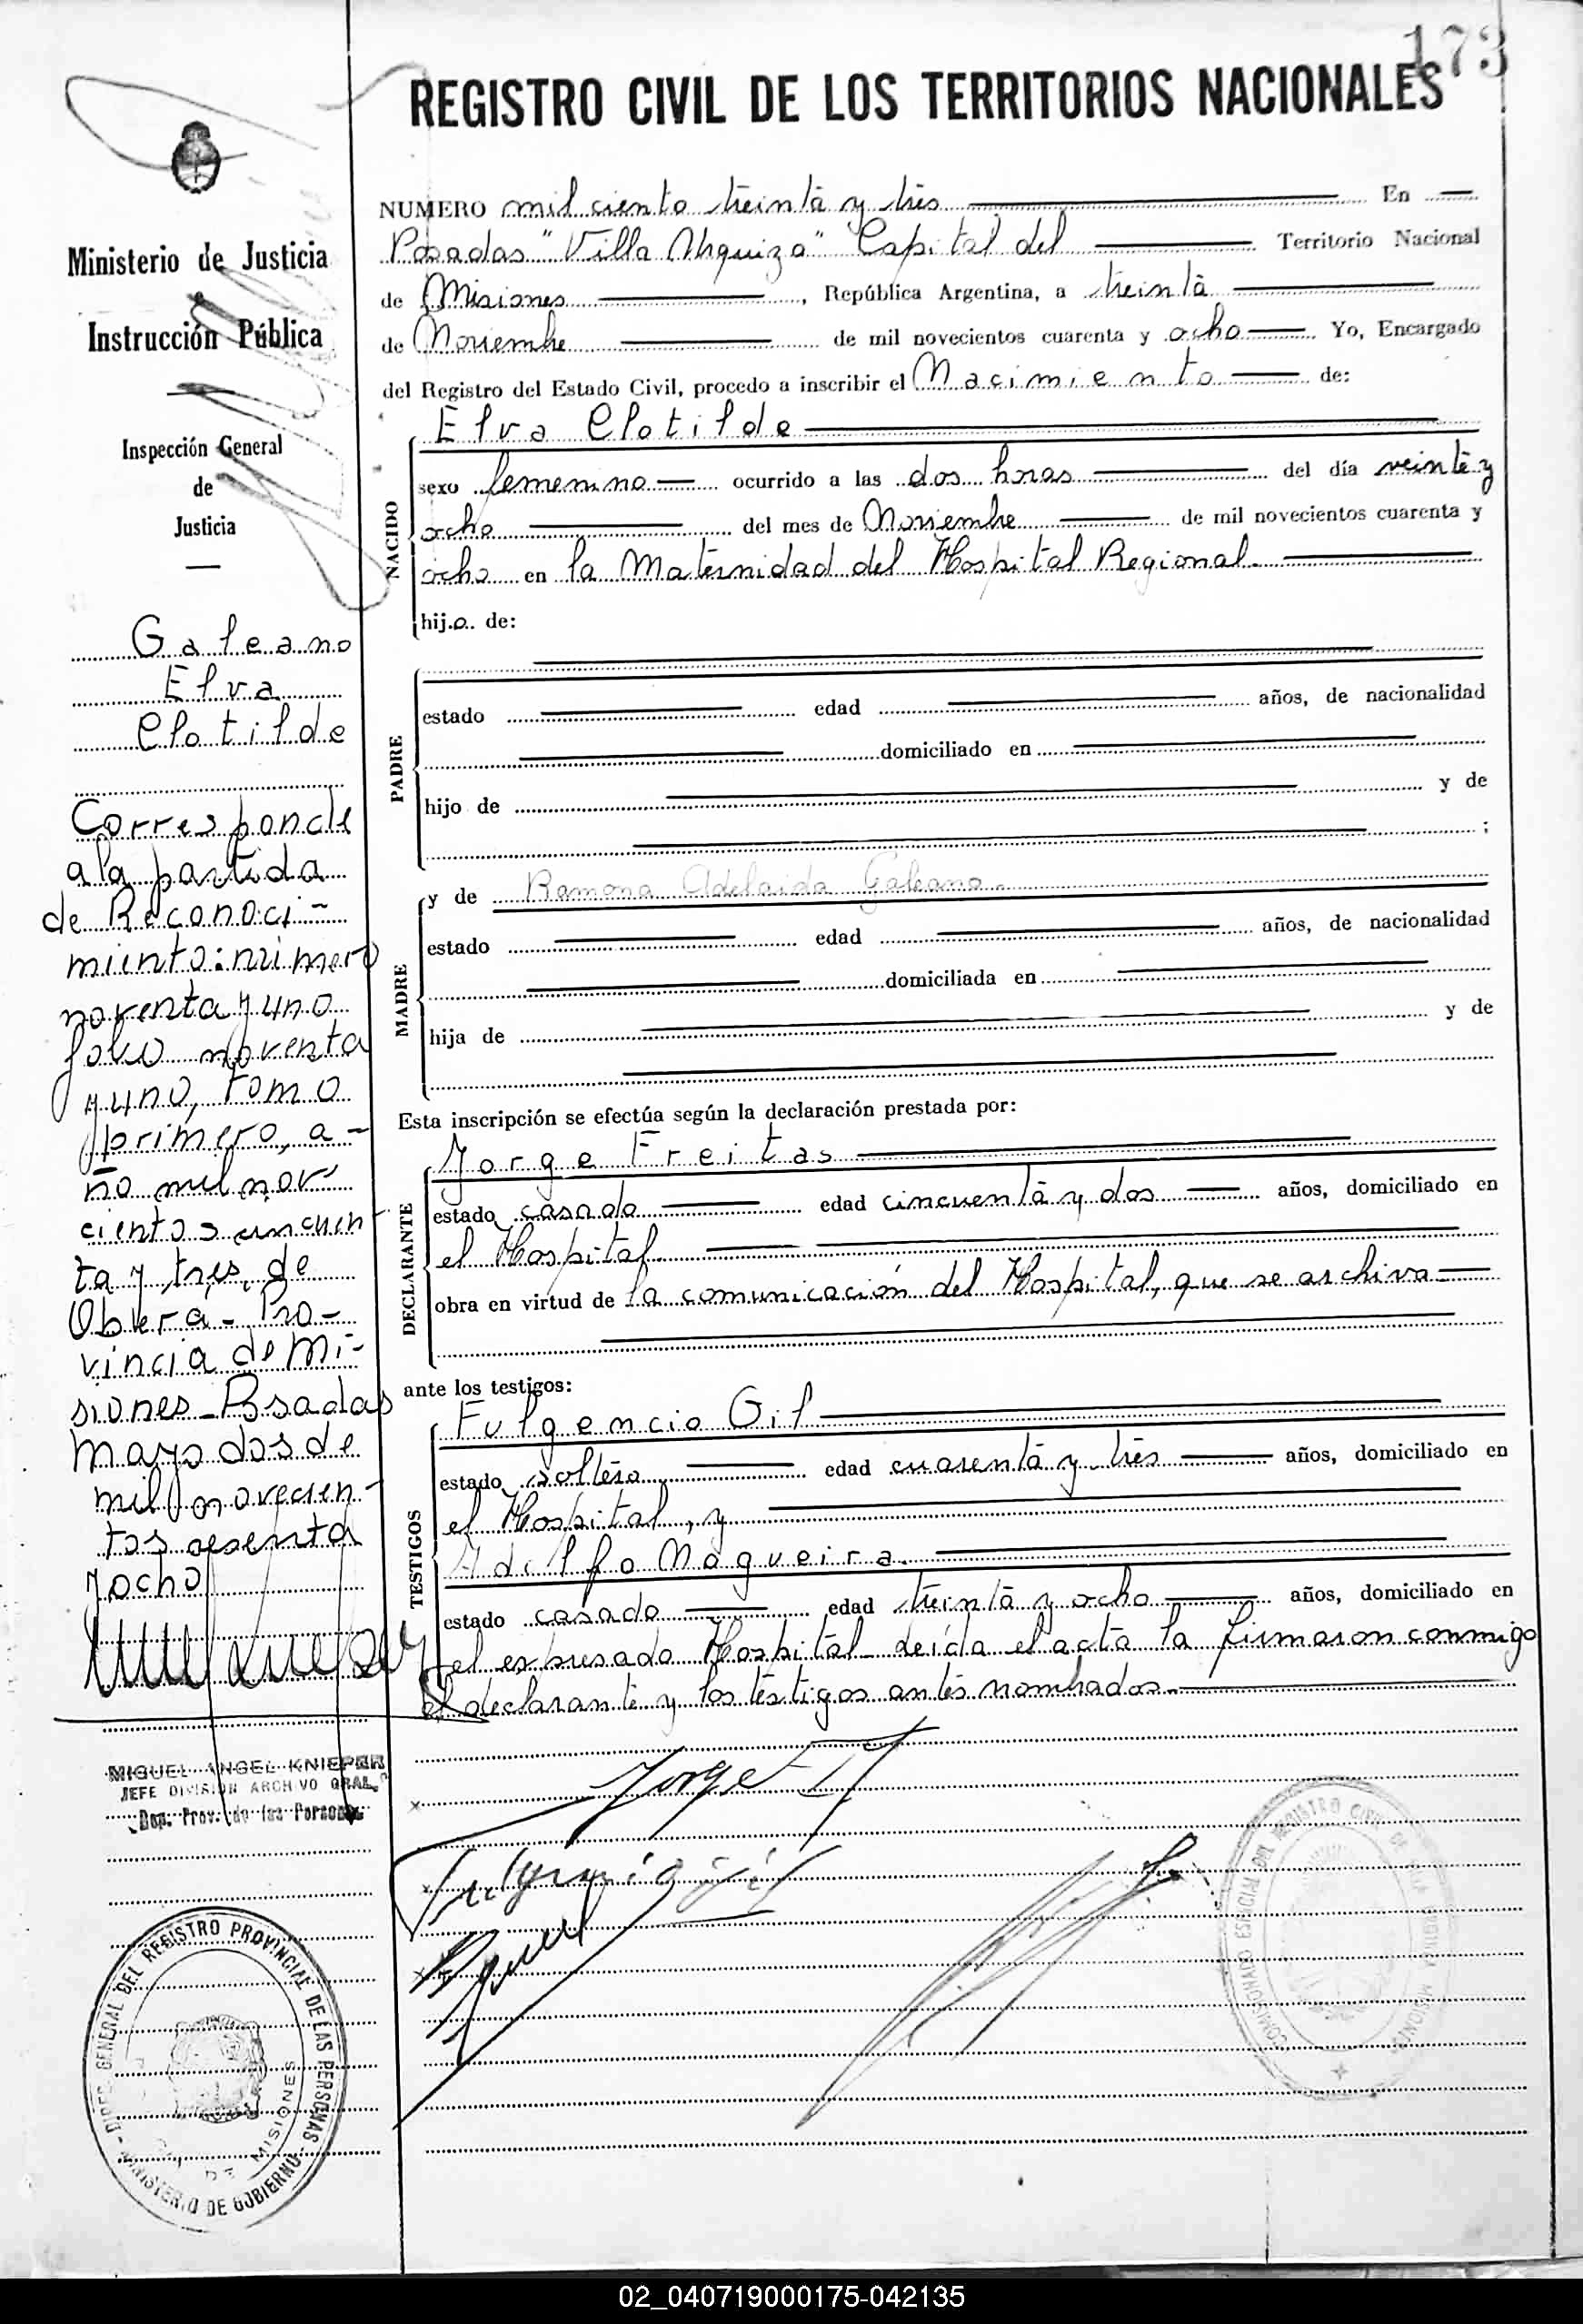 173
REGISTRO CIVIL DE LOS TERRITORIOS NACIONALES
Ministerio de Justicia
e
Instrucción Pública
Inspección General
de
Justicia
Galeano
Elva
Clotilde
Corresponde
a la partida
de Reconoci-
miento: número
noventa y uno
folio noventa
y uno, tomo
primero, a-
ño mil nove
cientos cincuen
ta y tres, de
Obera - Pro-
vincia de Mi-
siones - Posadas
mayo dos de
mil novecien-
tos sesenta
y ocho
MIGUEL ANGEL KNIEPER
JEFE DIVISION ARCHIVO GRAL.
Dep. Prov. de las Personas
DIREC. GENERAL DEL REGISTRO PROVINCIAL DE LAS PERSONAS
MINISTERIO DE GOBIERNO
MISIONES
NUMERO mil ciento treinta y tres En
Posadas "Villa Urquiza" Capital del Territorio Nacional
de Misiones, República Argentina, a treinta
de Noviembre de mil novecientos cuarenta y ocho Yo, Encargado
del Registro del Estado Civil, procedo a inscribir el Nacimiento de:
NACIDO
Elva Clotilde
sexo femenino ocurrido a las dos horas del día veinte y
ocho del mes de Noviembre de mil novecientos cuarenta y
ocho en la Maternidad del Hospital Regional.
hij.a. de:
PADRE
estado edad años, de nacionalidad
domiciliado en
hijo de y de
;
MADRE
y de Ramona Adelaida Galeano.
estado edad años, de nacionalidad
domiciliada en
hija de y de
Esta inscripción se efectúa según la declaración prestada por:
DECLARANTE
Jorge Freitas
estado casado edad cincuenta y dos años, domiciliado en
el Hospital
obra en virtud de la comunicación del Hospital, que se archiva
ante los testigos:
TESTIGOS
Fulgencio Gil
estado soltero edad cuarenta y tres años, domiciliado en
el Hospital, y
Adolfo Nogueira.
estado casado edad treinta y ocho años, domiciliado en
el expresado Hospital leída el acta la firmaron conmigo
el declarante y los testigos antes nombrados.
Jorge F
Fulgencio Gil
COMISIONADO ESPECIAL DEL REGISTRO CIVIL
02_040719000175-042135